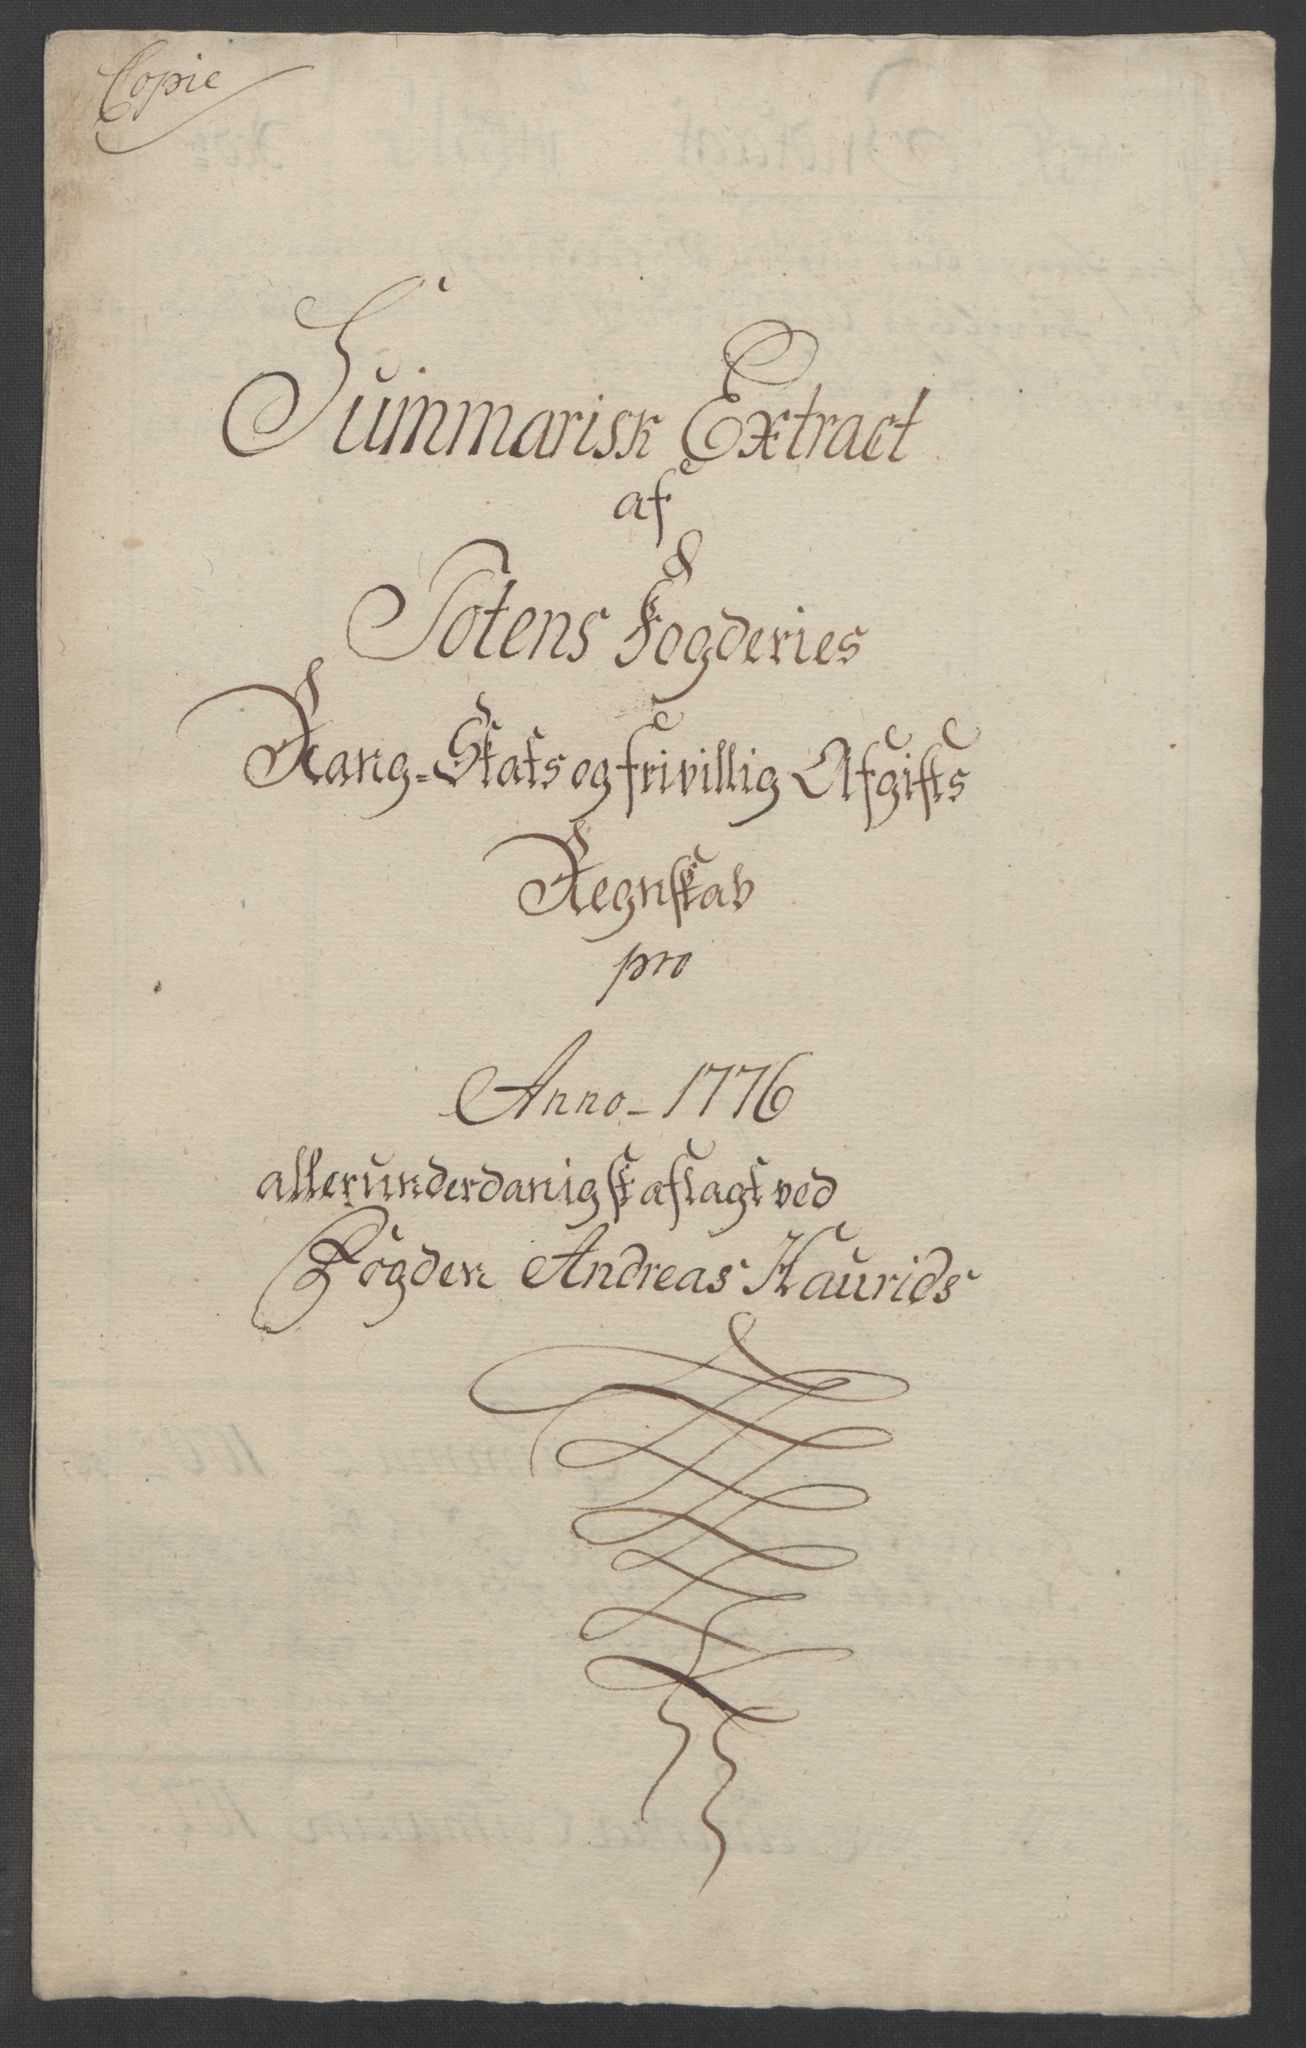 Copie
Summarisk Extract
af
Totens Fogderies
Rang-Skats og frivillig Afgifts
Regnskab
pro
Anno - 1776
allerunderdanigst aflagt ved
Fogden Andreas Haurids